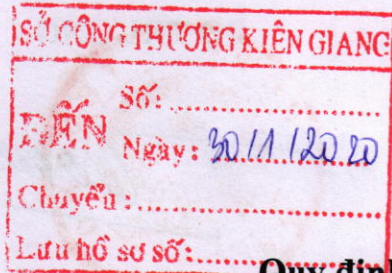 SỞ CÔNG THƯƠNG KIÊN GIANG
ĐẾN
Số: ....................
Ngày: 30/11/2020
Chuyển: ....................
Lưu hồ sơ số: ....................
Quy định